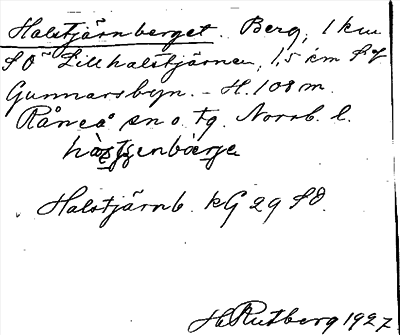 Halstjärnberget. Berg, 1 km
SO Lillhalstjärnen, 1,5 km S of
Gunnarsbyn. - H. 108 m.
Råneå sn o. tg. Norrb. l.
Halstjärnb. kG 29 SO.
H. Rutberg 1927